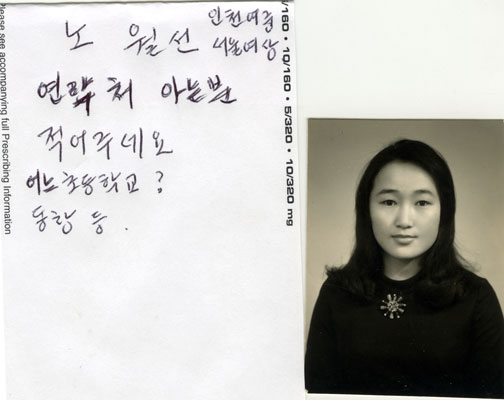 노 월선 인천여중
서울여상
연락처 아는분
적어주네요
어느 초등학교?
동창 등.
1/160 • 10/160 • 5/320 • 10/320 mg
please see accompanying full Prescribing Information